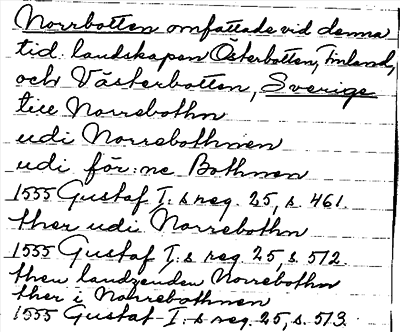 Norrbotten omfattade vid denna
tid landskapen Österbotten, Finland,
och Västerbotten, Sverige
till Norrebothn
udi Norrebothnen
udi för:ne Bothnen
1555 Gustaf I:s reg. 25, s. 461.
ther udi Norrebothn
1555 Gustaf I:s reg. 25, s. 512
then landzenden Norrebothn
ther i Norrebothnen
1555 Gustaf I:s reg. 25, s. 513.